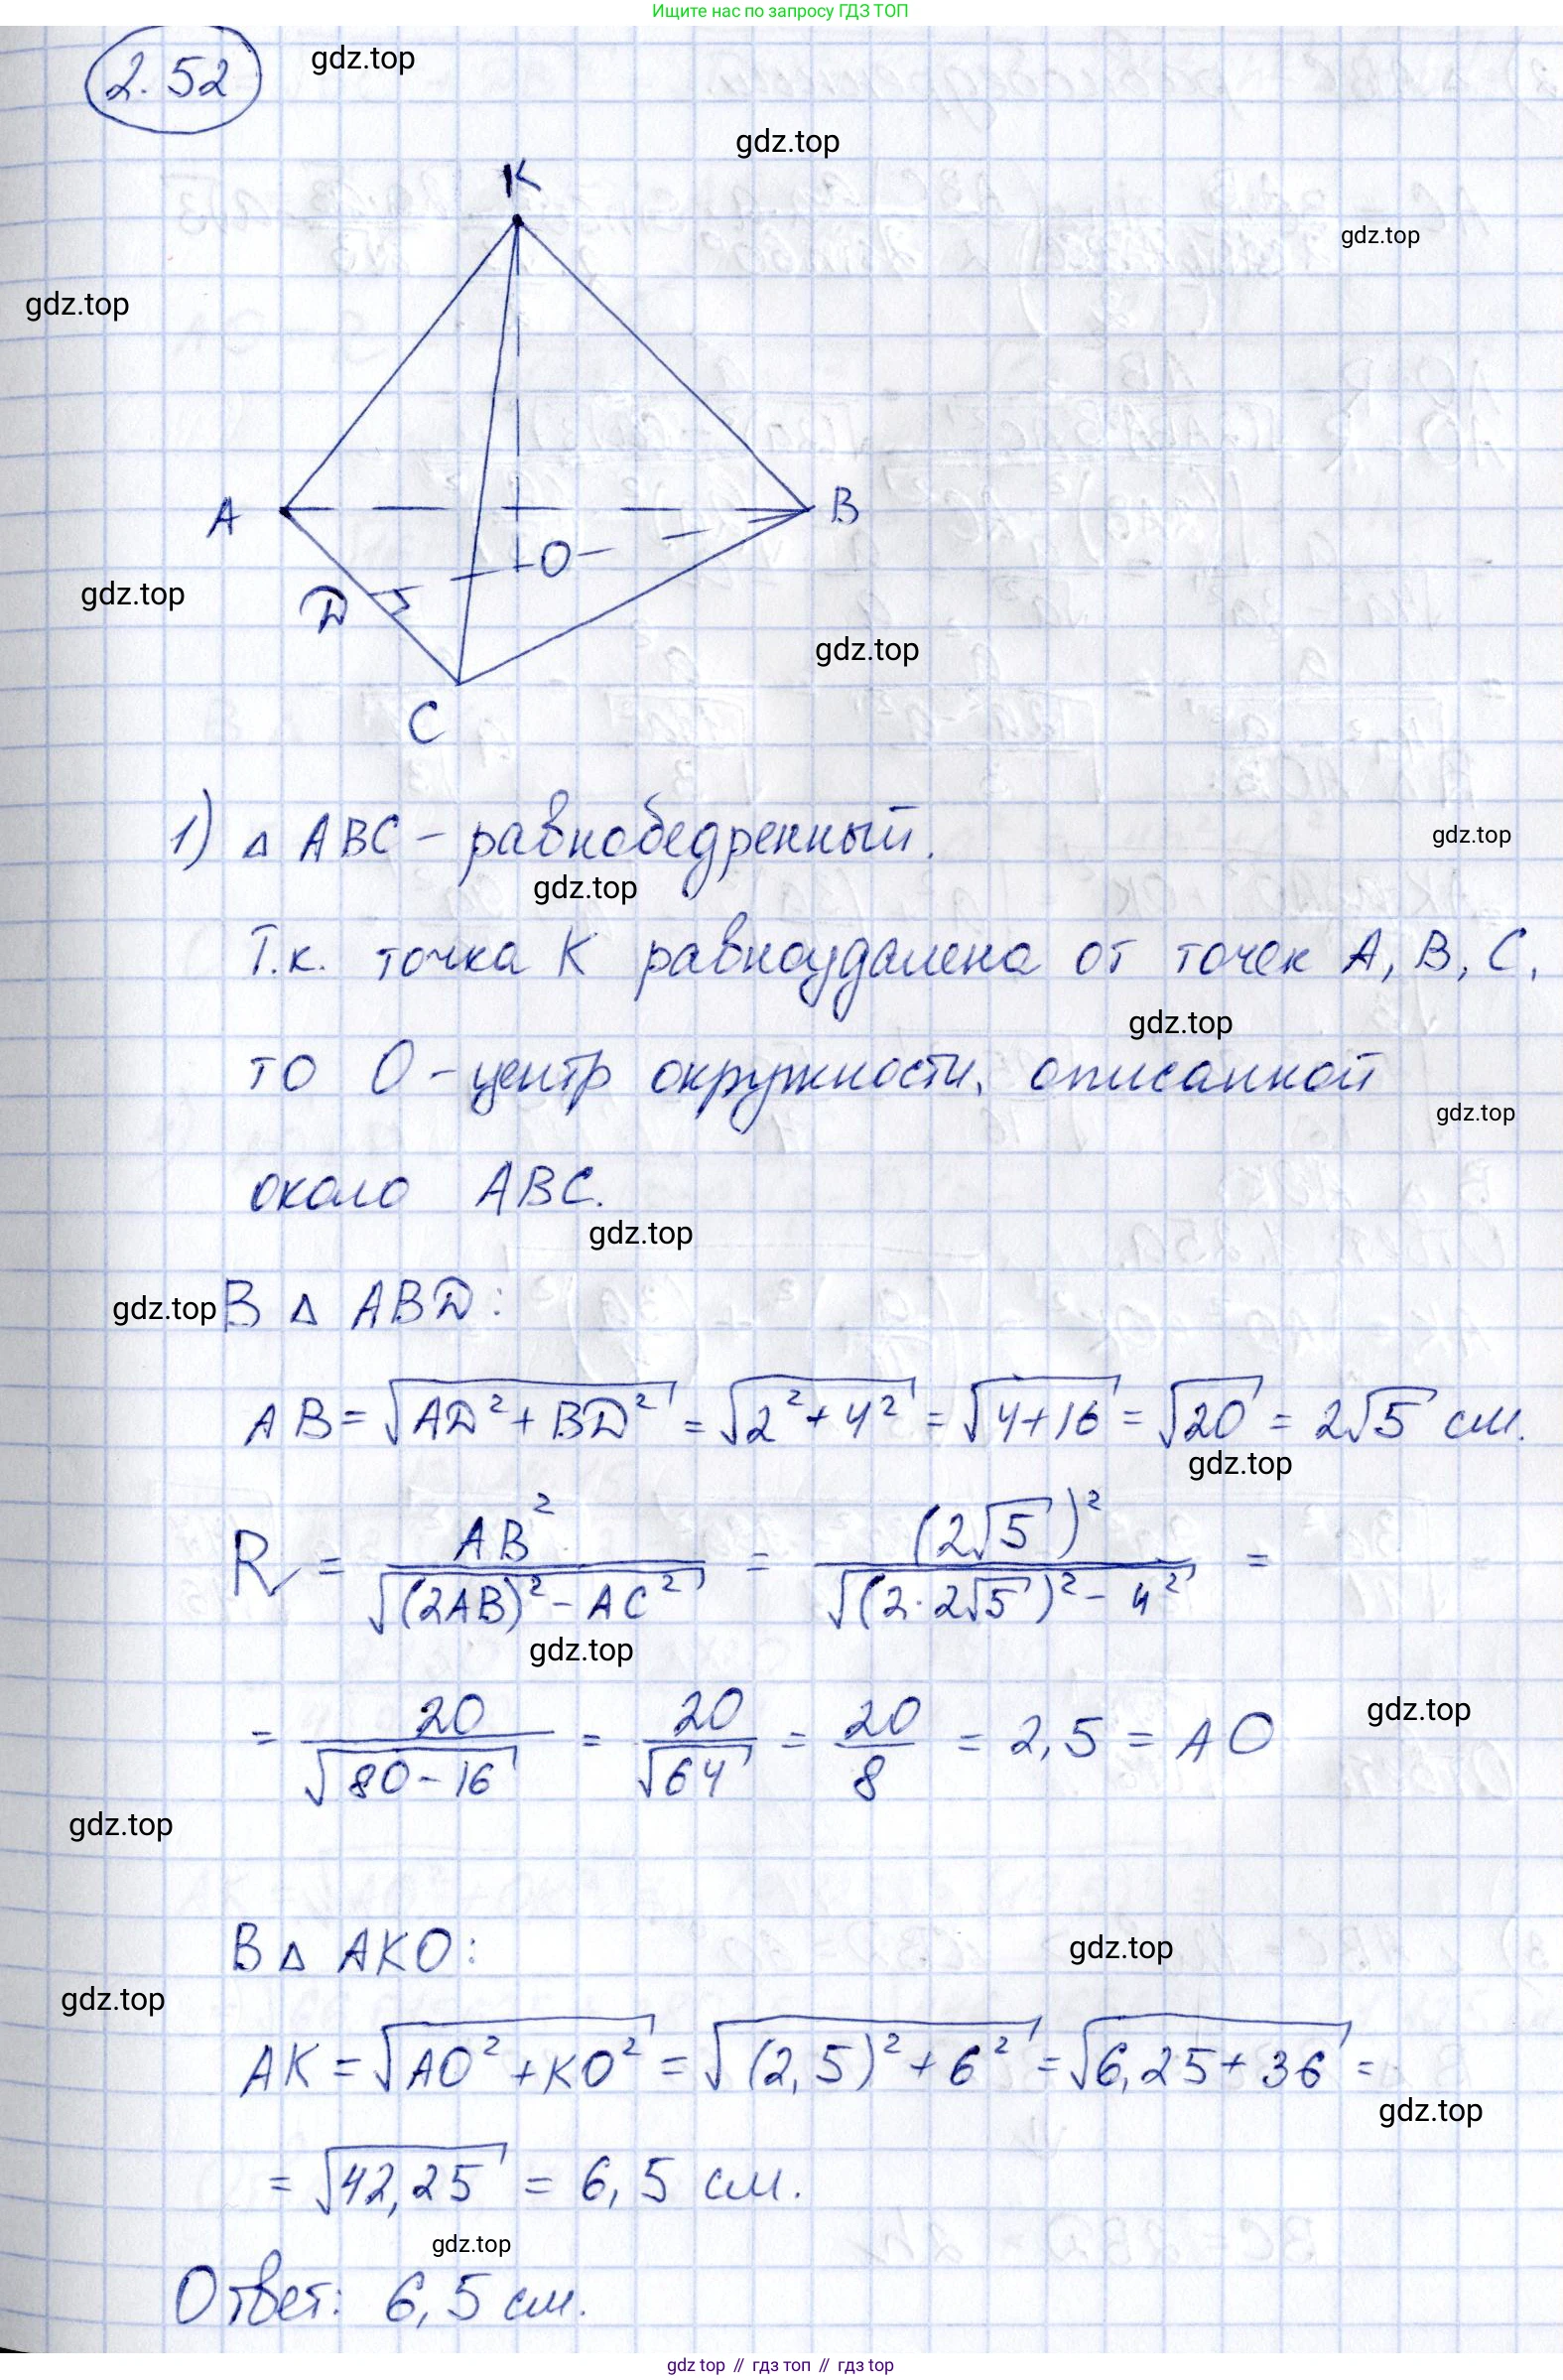 Ищите нас по запросу ГДЗ ТОП
2.52
gdz.top
gdz.top
K
gdz.top
gdz.top
A
B
O
gdz.top
D
gdz.top
C
1) Δ ABC – равнобедренный.
gdz.top
gdz.top
Т.к. точка K равноудалена от точек A, B, C,
gdz.top
то O – центр окружности, описанной
gdz.top
около ABC.
gdz.top
gdz.top
В Δ ABD:
AB = √(AD² + BD²) = √(2² + 4²) = √(4+16) = √20 = 2√5 см.
gdz.top
R = AB² / √((2AB)² – AC²) = (2√5)² / √((2·2√5)² – 4²) =
gdz.top
= 20 / √(80–16) = 20 / √64 = 20 / 8 = 2,5 = AO
gdz.top
gdz.top
В Δ AKO:
gdz.top
gdz.top
AK = √(AO² + KO²) = √((2,5)² + 6²) = √(6,25 + 36) =
gdz.top
= √42,25 = 6,5 см.
gdz.top
Ответ: 6,5 см.
gdz top // гдз топ // гдз top